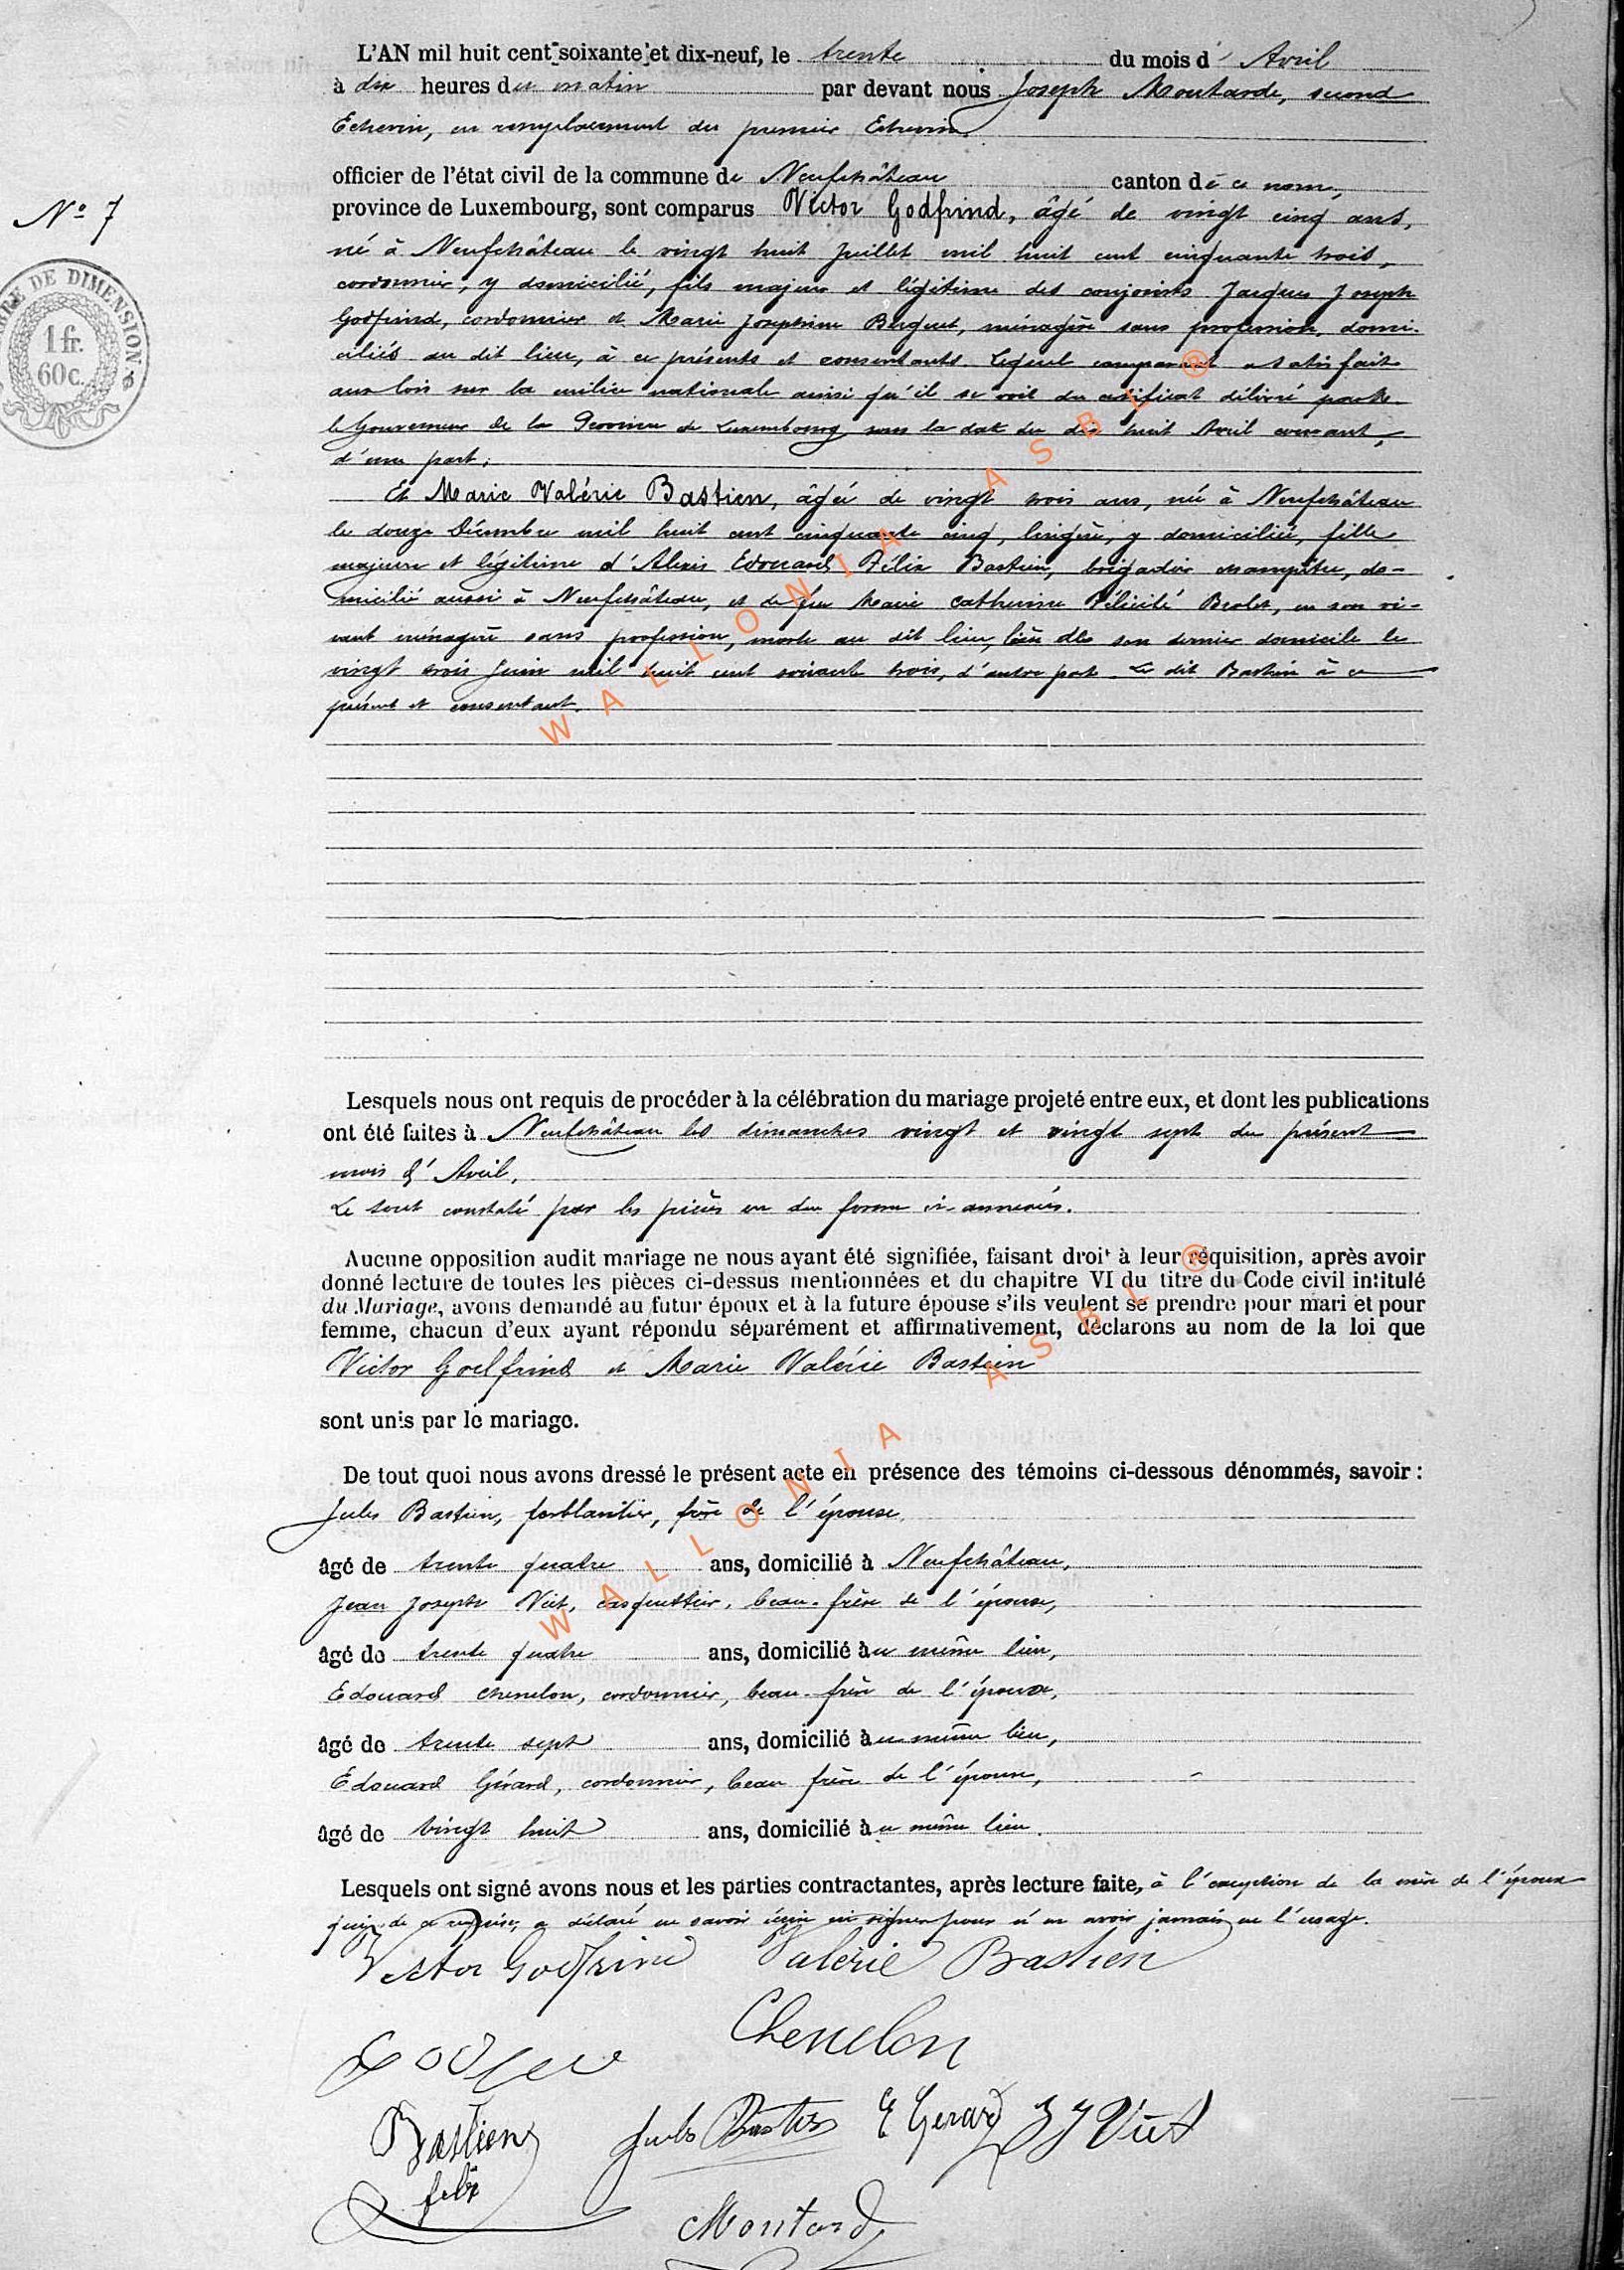 L'AN mil huit cent soixante et dix-neuf, le trente du mois d' Avril
à dix heures du matin par devant nous Joseph Moutarde, second
Echevin, en remplacement du premier Echevin,
officier de l'état civil de la commune de Neufchâteau canton de ce nom,
N° 7
province de Luxembourg, sont comparus Victor Godfrind, âgé de vingt cinq ans,
né à Neufchâteau le vingt huit Juillet mil huit cent cinquante trois,
cordonnier, y domicilié, fils majeur et légitime des conjoints Jacques Joseph
TIMBRE DE DIMENSION
1 fr.
60 c.
Godfrind, cordonnier et Marie Joséphine Berguet, ménagère sans profession, domi-
ciliés au dit lieu, à ce présents et consentants. Lequel comparant a satisfait
aux lois sur la milice nationale ainsi qu'il se voit du certificat délivré par
le Gouverneur de la Province de Luxembourg sous la date du dix huit Avril courant,
d'une part;
Et Marie Valérie Bastien, âgée de vingt trois ans, née à Neufchâteau
le douze Décembre mil huit cent cinquante cinq, lingère, y domiciliée, fille
majeure et légitime d'Alexis Edouard Félix Bastien, brigadier, do-
micilié aussi à Neufchâteau, et de feu Marie Catherine Félicité Brolet, en son vi-
vant ménagère sans profession, morte au dit lieu, lieu de son dernier domicile le
vingt trois Juin mil huit cent soixante trois, d'autre part. Le dit Bastien à ce
présent et consentant.
WALLONIA ASBL ®
Lesquels nous ont requis de procéder à la célébration du mariage projeté entre eux, et dont les publications
ont été faites à Neufchâteau les dimanches vingt et vingt sept du présent
mois d'Avril,
Le tout constaté par les pièces en due forme ci-annexées.
Aucune opposition audit mariage ne nous ayant été signifiée, faisant droit à leur réquisition, après avoir
donné lecture de toutes les pièces ci-dessus mentionnées et du chapitre VI du titre du Code civil intitulé
du Mariage, avons demandé au futur époux et à la future épouse s'ils veulent se prendre pour mari et pour
femme, chacun d'eux ayant répondu séparément et affirmativement, déclarons au nom de la loi que
Victor Godfrind et Marie Valérie Bastien
sont unis par le mariage.
De tout quoi nous avons dressé le présent acte en présence des témoins ci-dessous dénommés, savoir :
Jules Bastien, ferblantier, frère de l'épouse,
âgé de trente quatre ans, domicilié à Neufchâteau,
Jean Joseph Viet, casquettier, beau-frère de l'épouse,
âgé de trente quatre ans, domicilié au même lieu,
Edouard Chenelon, cordonnier, beau-frère de l'époux,
âgé de trente sept ans, domicilié au même lieu,
Edouard Gérard, cordonnier, beau frère de l'épouse,
âgé de vingt huit ans, domicilié au même lieu.
WALLONIA ASBL ®
Lesquels ont signé avons nous et les parties contractantes, après lecture faite, à l'exception de la mère de l'époux
qui, de ce requise, a déclaré ne savoir écrire ni signer pour n'en avoir jamais eu l'usage.
Victor Godfrind Valérie Bastien
Chenelon
Bastien Jules Bastien E Gerard J J Viet
felix
Moutarde